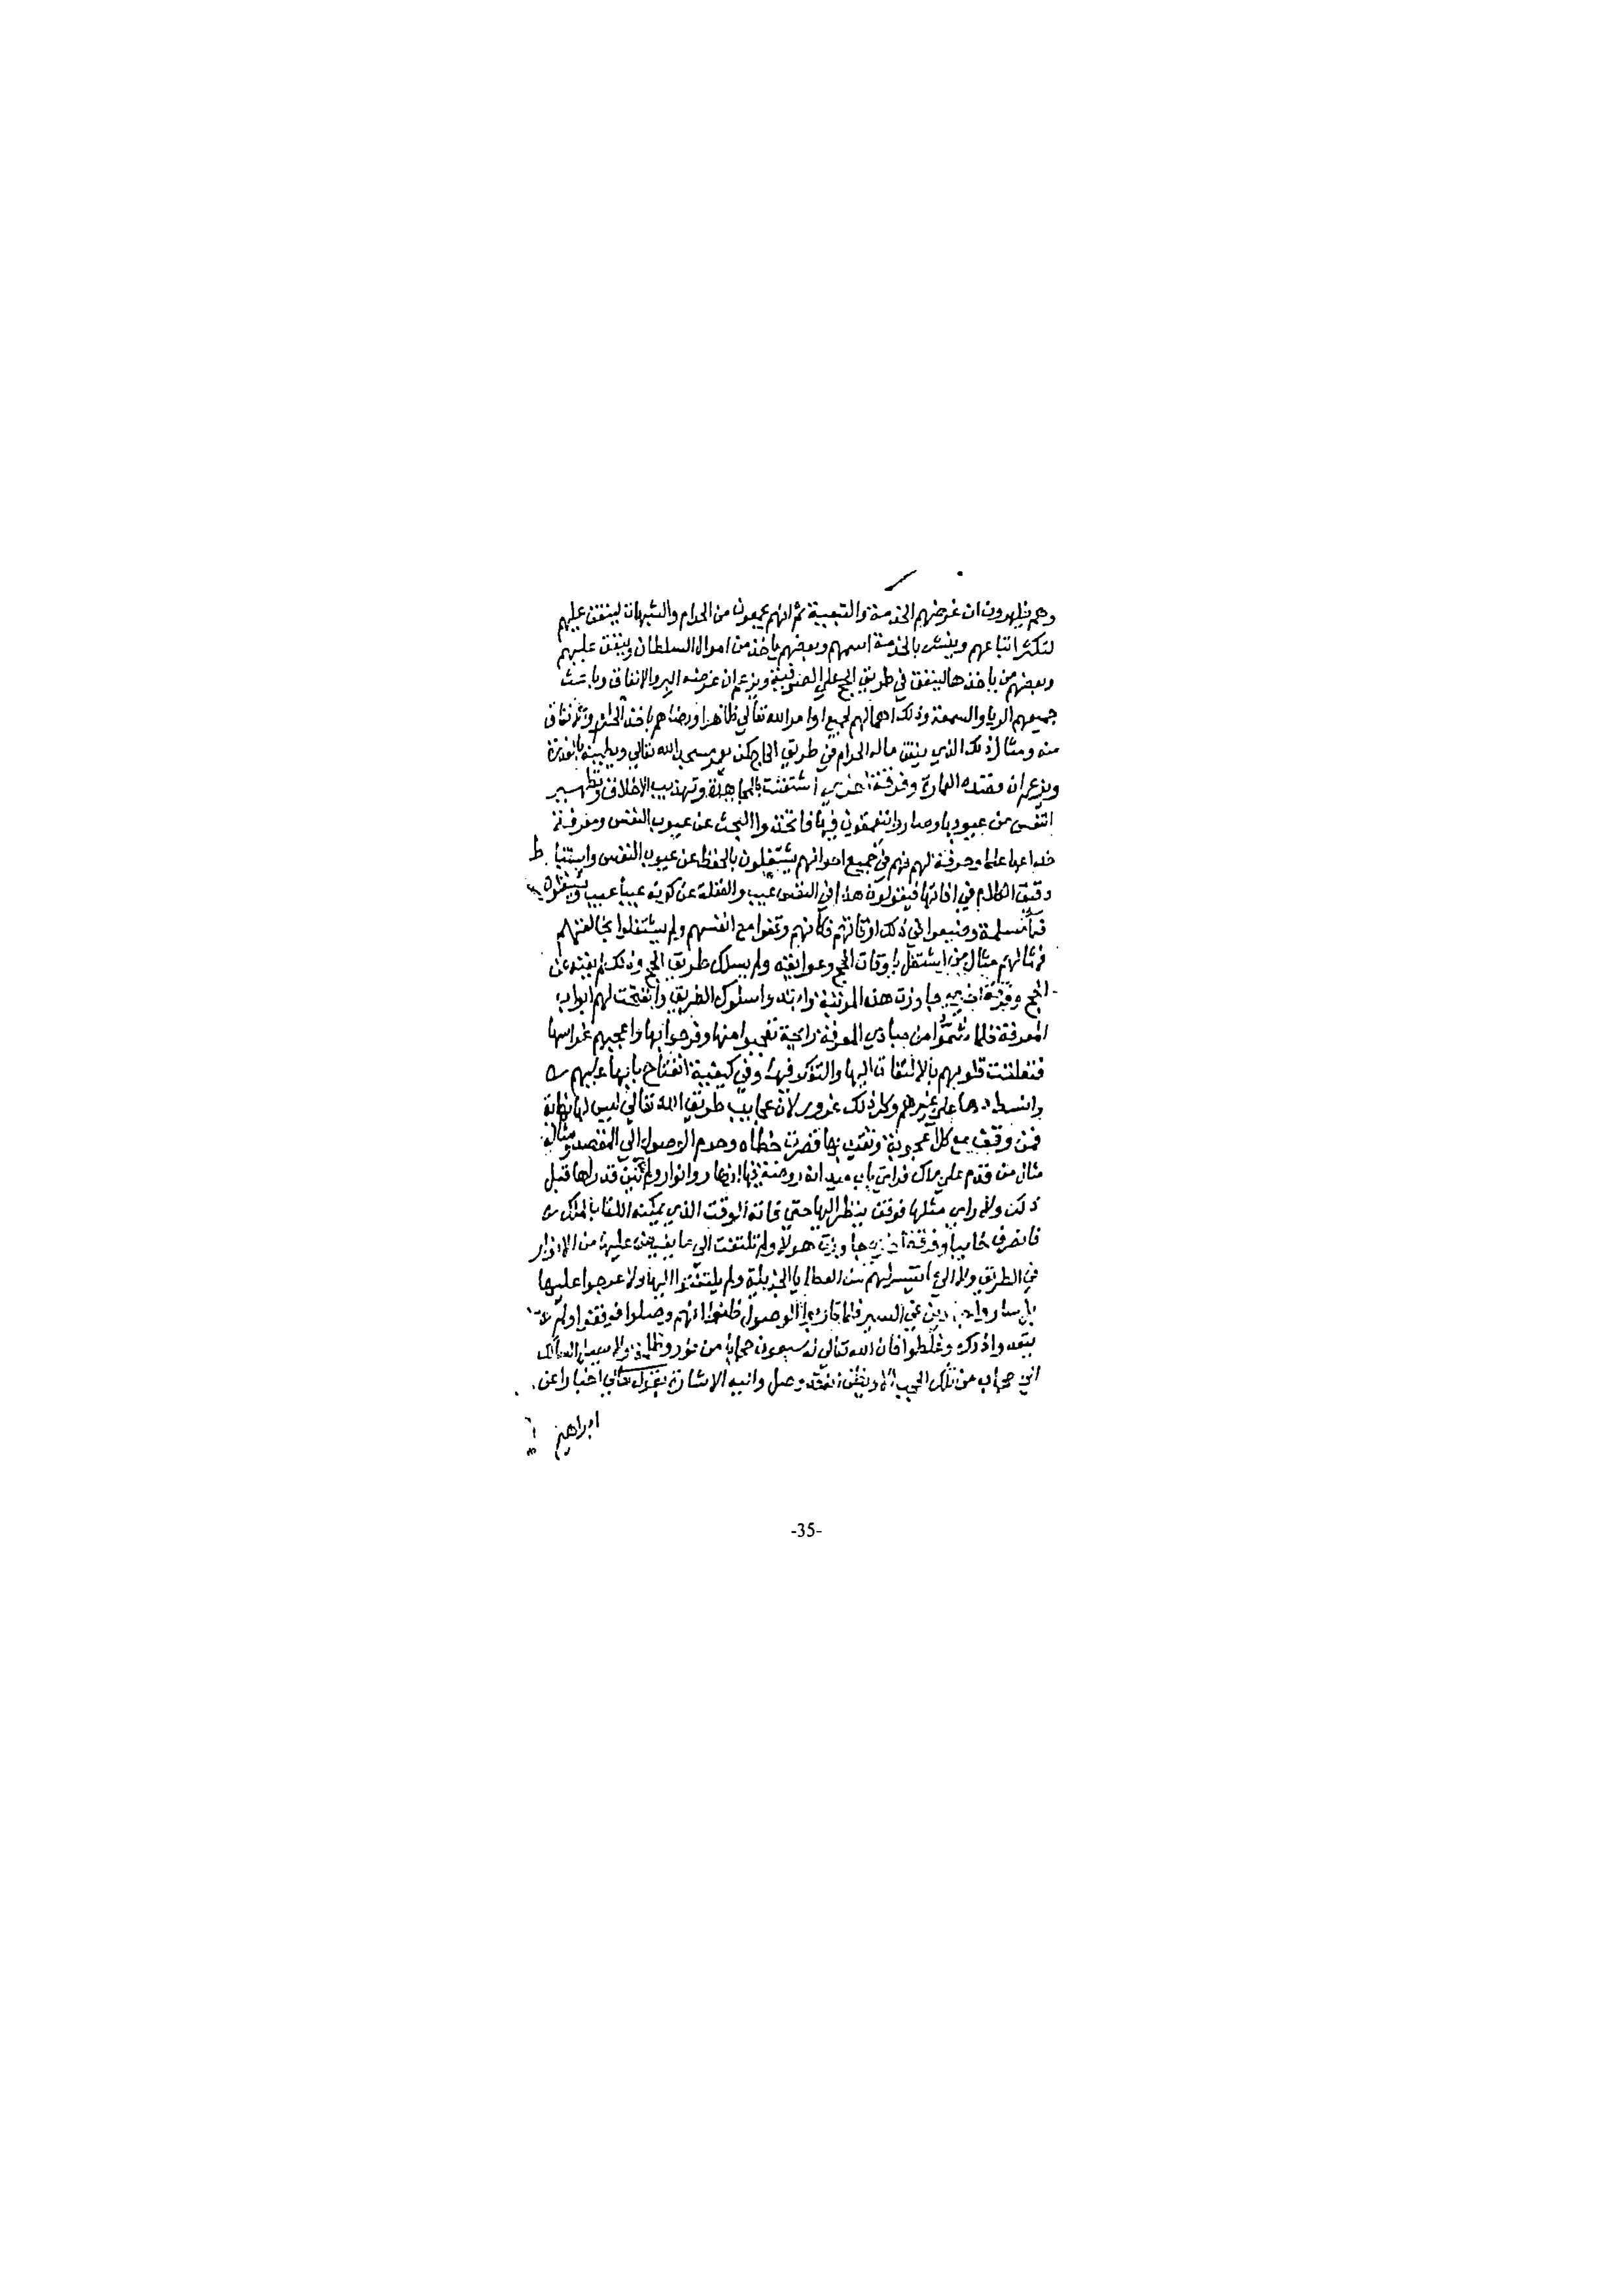 وهم يظهرون ان غرضهم الخدمة والتبعية ثم انهم يجمعون من الحرام والشبهات لينفق عليهم
لتكثر اتباعهم وينشر بالخدمة اسمهم وبعضهم يأخذ من اموال السلطان وينفق عليهم
وبعضهم من ياخذها لينفق في طريق الحج على الصوفية ويزعم ان غرضه البر والانفاق وباعث
جميعهم الريا والسمعة وذلك اهمالهم لجميع اوامر الله تعالى ظاهرا ورضاهم باخذ الحرام والانفاق
منه ومثال ذلك الذي ينفق ماله الحرام في طريق الحاج كمن يعمر مسجد الله تعالى ويطينه بالعذرة
ويزعم ان قصده العمارة وفرقة اخرى اشتغلت بالمجاهدة وتهذيب الاخلاق وتطهير
النفس من عيوبها وصاروا يتعمقون فيها فاتخذوا البحث عن عيوب النفس ومعرفة
خداعها علما وحرفة لهم فهم في جميع احوالهم يشتغلون بالحفظ عن عيوب النفس واستنباط
دقيق الكلام في افاتها فيقولون هذا في النفس عيب والغفلة عن كونه عيبا عيب ويشغلون
وضيعوا في ذلك اوقاتهم فكأنهم وقفوا مع انفسهم ولم يشتغلوا بخالقهم
فمثالهم مثال من اشتغل باوقات الحج وعوايقه ولم يسلك طريق الحج وذلك لم يغنه عن
الحج وفرقة اخرى جاوزت هذه المرتبة وابتدوا سلوك الطريق وانفتحت لهم ابواب
المعرفة فلما تشمموا من مبادي المعرفة رايحة تعجبوا منها وفرحوا بها واعجبهم غراسها
فتعلقت قلوبهم بالالتفات اليها والتفكر فيها وفي كيفية انفتاح بابها عليهم
وانسدادها على غيرهم وكل ذلك غرور لان عجايب طريق الله تعالى ليس لها نهاية
فمن وقف مع كل اعجوبة وتقيد بها قصرت خطاه وحرم الوصول الى المقصد ومثاله
مثال من قدم على ملك فراى باب ميدانه روضة فيها ازهار وانوار ولم يكن قد راها قبل
ذلك ولا راى مثلها فوقف ينظر اليها حتى فاته الوقت الذي يمكنه اللقا بالملك
فانصرف خايبا وفرقة اخرى جاوزت هولا ولم تلتفت الى ما يفيض عليها من الانوار
في الطريق ولا الى ما تيسر لهم من العطايا الجزيلة ولم يلتفتوا اليها ولا عرجوا عليها
السير فلما قاربوا الوصول ظنوا انهم وصلوا فوقفوا ولم
يتعدوا ذلك وغلطوا فان الله تعالى له سبعون حجابا من نور وظلمة ولا يصل السالك
الى حجاب من تلك الحجب الا ويظن انه قد وصل واليه الاشارة بقوله تعالى اخبارا عن
ابراهيم
-35-